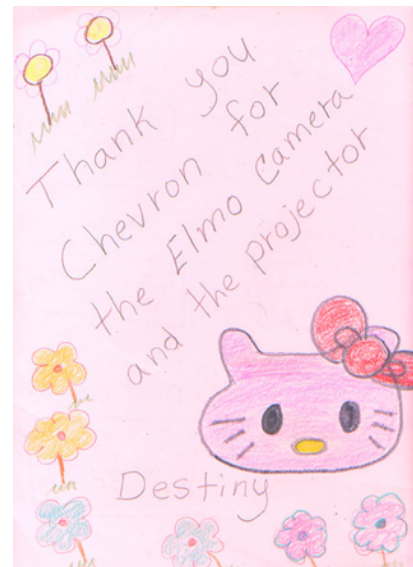 Thank you
Chevron for
the Elmo Camera
and the projector
Destiny